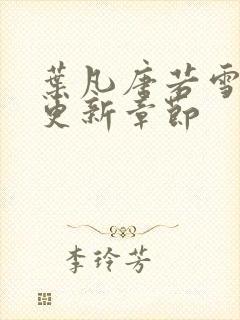 葉凡唐若雪
更新章節
李玲芳